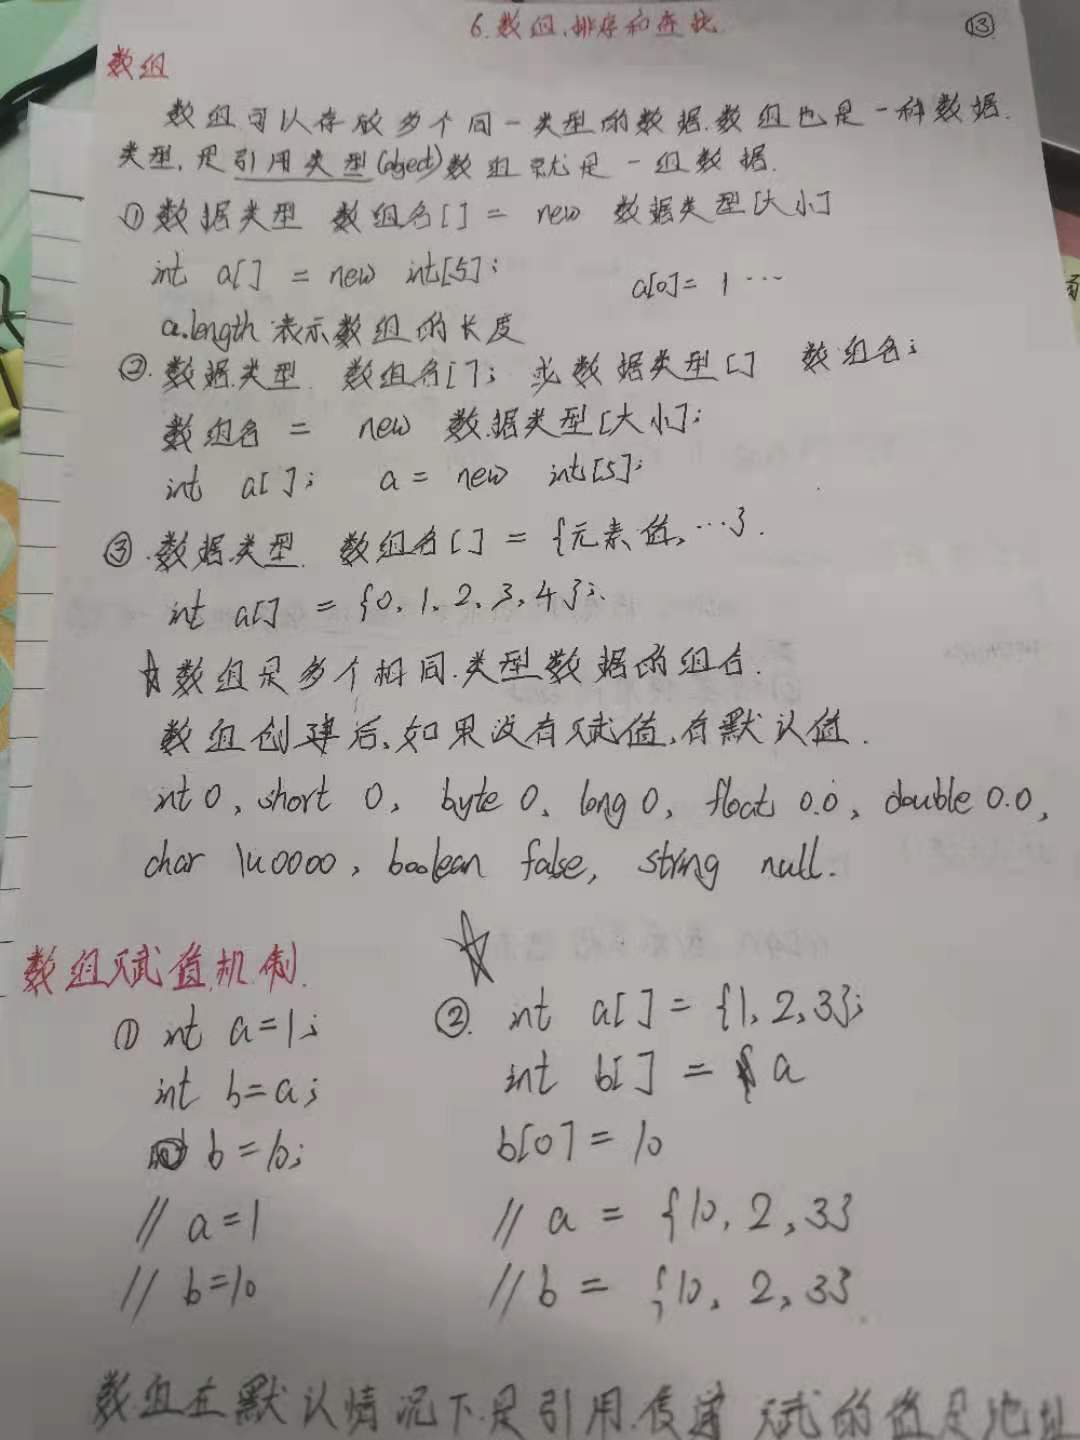 6.数组、排序和查找
⑬
数组
数组可以存放多个同一类型的数据.数组也是一种数据.
类型,是引用类型(object)数组就是一组数据.
① 数据类型 数组名[] = new 数据类型[大小]
int a[] = new int[5];
a[0]= 1 ···
a.length 表示数组的长度
②. 数据类型. 数组名[]; 或数据类型[] 数组名;
数组名 = new 数据类型[大小];
int a[]; a = new int[5];
③.数据类型. 数组名[] = {元素值,···}.
int a[] = {0, 1, 2, 3, 4};
☆数组是多个相同.类型数据的组合.
数组创建后,如果没有赋值,有默认值.
int 0, short 0, byte 0, long 0, float 0.0, double 0.0,
char \u0000, boolean false, string null.
数组赋值机制.
① int a=1;
int b=a;
b=10;
// a=1
// b=10
②. int a[] = {1, 2, 3};
int b[] = a
b[0] = 10
// a = {10, 2, 3}
// b = {10, 2, 3}
数组在默认情况下.是引用.传递 赋的值是地址